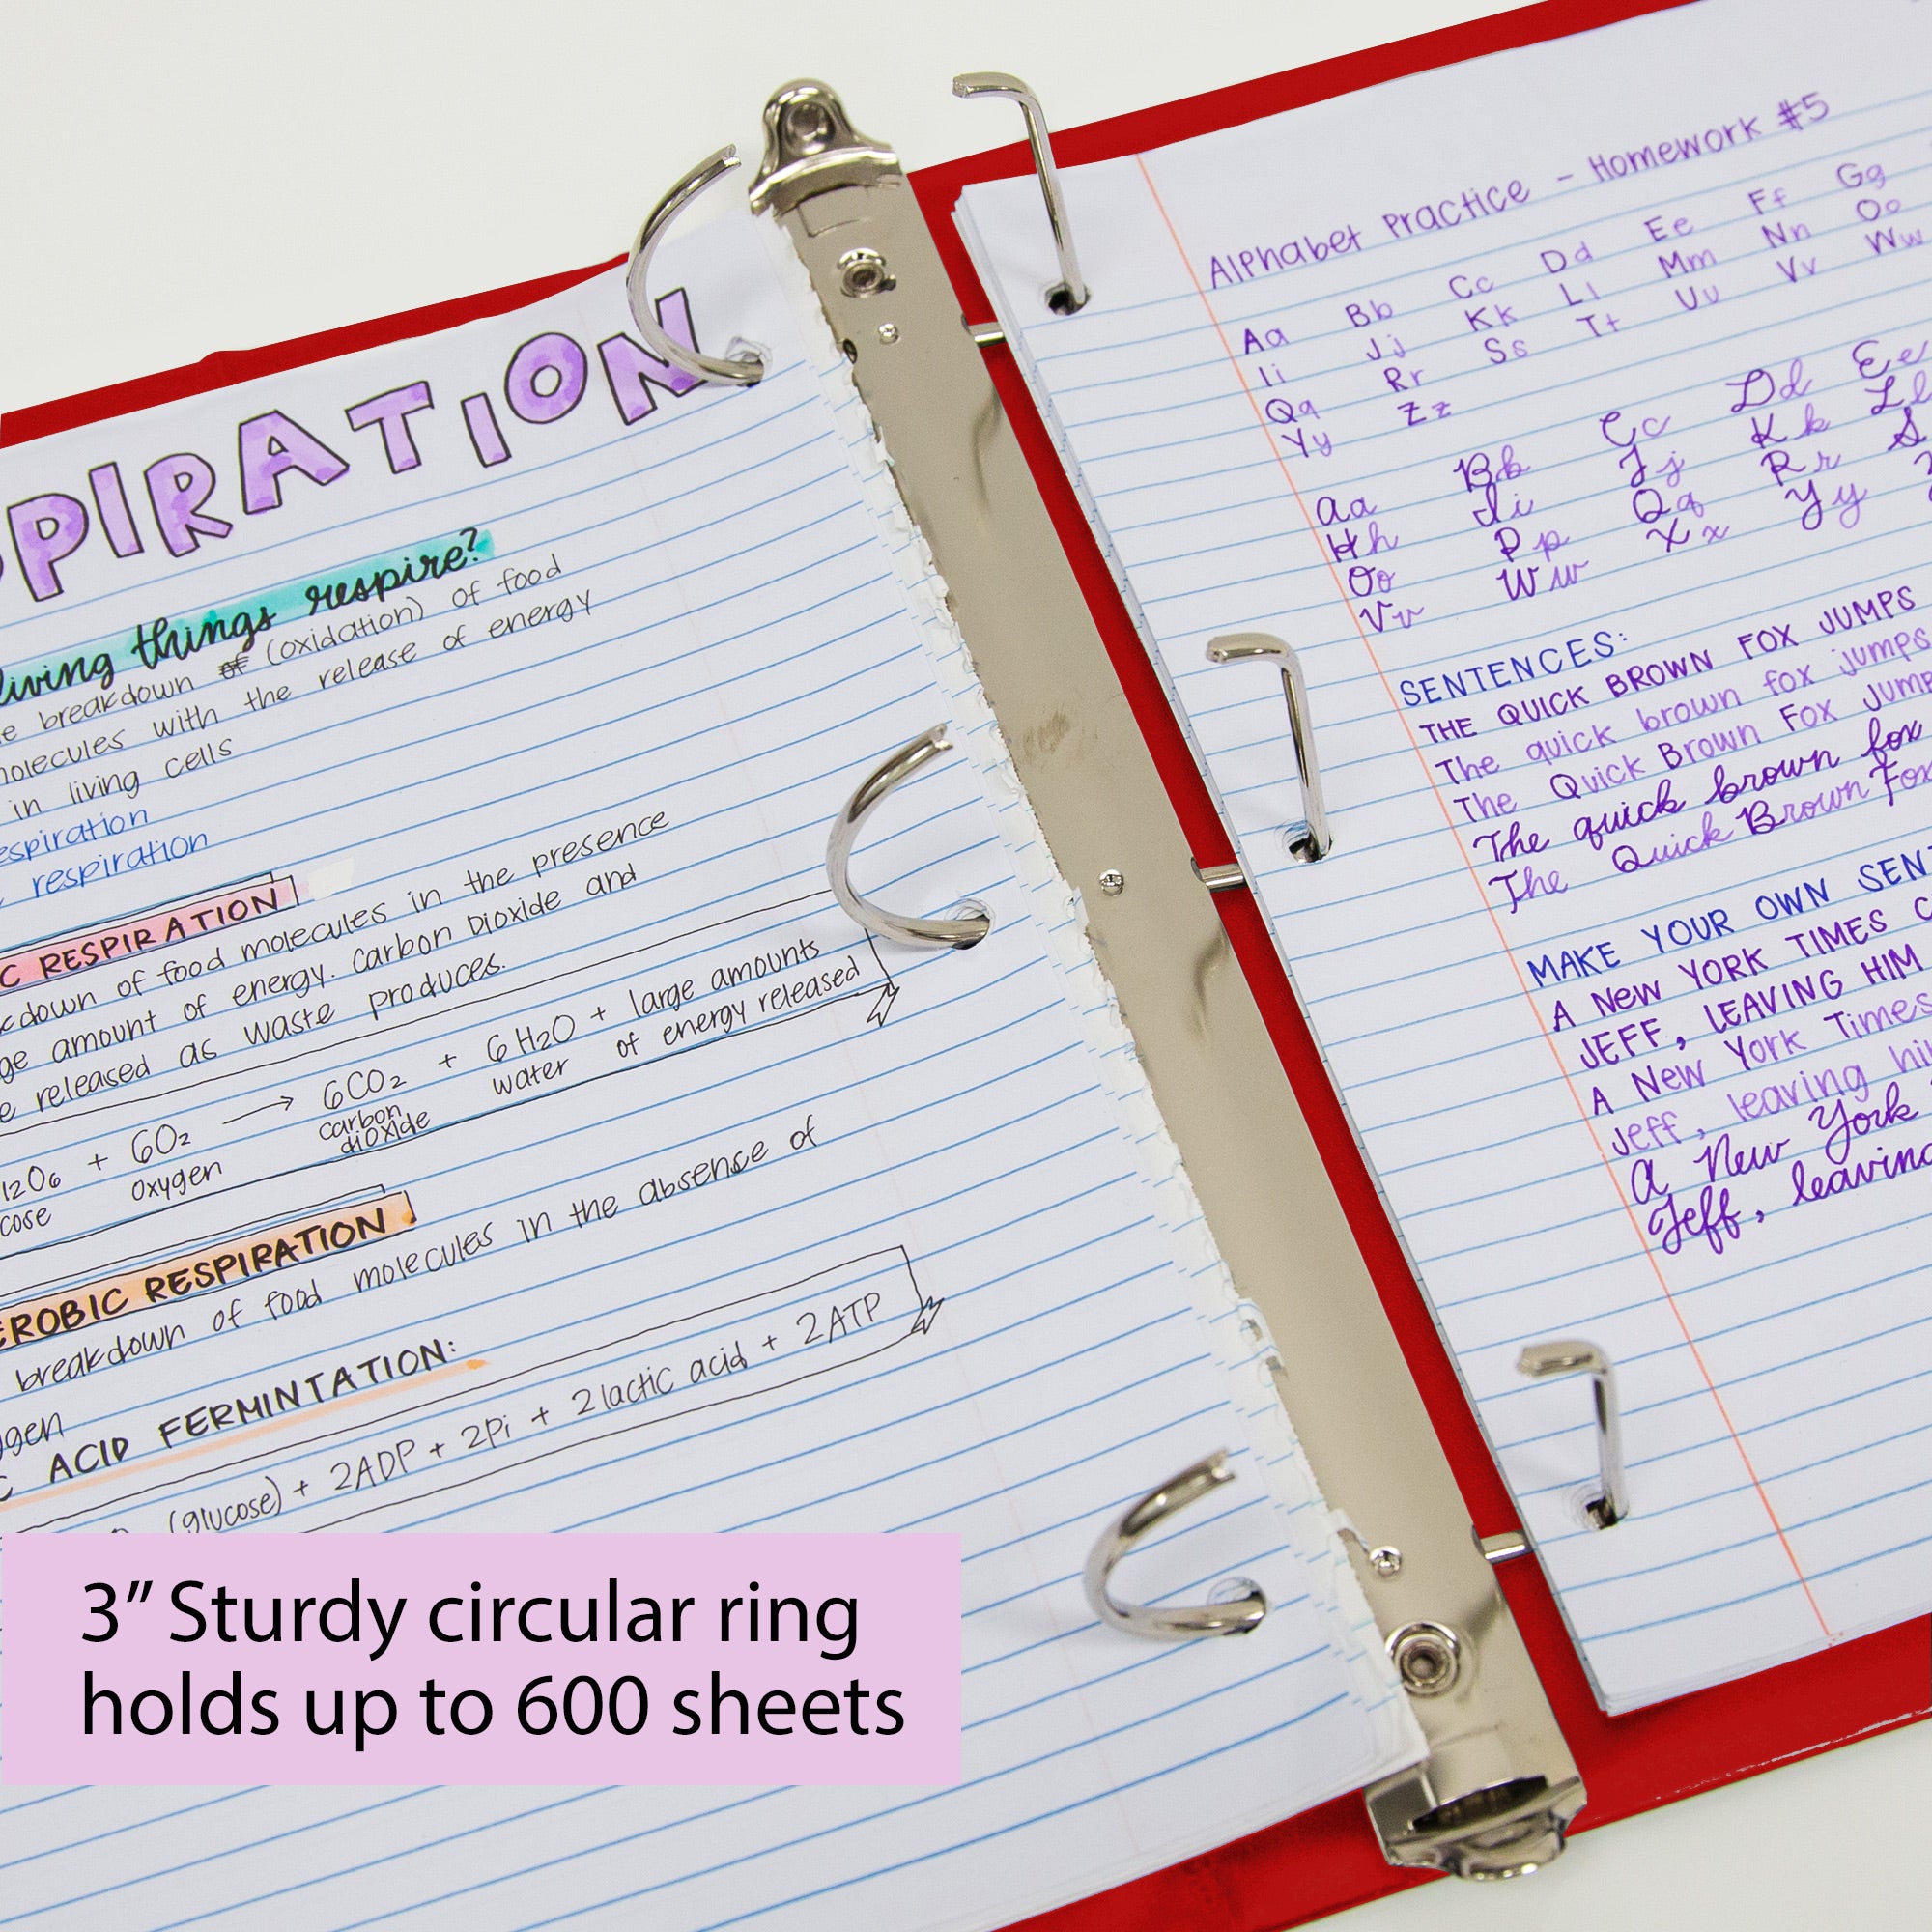 PIRATION
living things respire?
breakdown of (oxidation) of food
molecules with the release of energy
in living cells
espiration
respiration
C RESPIRATION
kdown of food molecules in the presence
ge amount of energy. Carbon Dioxide and
e released as waste produces.
12O6 + 6O2 → 6CO2 + 6H2O + large amounts
cose oxygen carbon dioxide water of energy released
EROBIC RESPIRATION
breakdown of food molecules in the absence of
ygen
C ACID FERMINTATION:
(glucose) + 2ADP + 2Pi + 2lactic acid + 2ATP
Alphabet Practice - Homework #5
Aa Bb Cc Dd Ee Ff Gg
Ii Jj Kk Ll Mm Nn Oo
Qq Rr Ss Tt Uu Vv Ww
Yy Zz
Aa Bb Cc Dd Ee
Hh Ii Jj Kk Ll
Oo Pp Qq Rr S
Vv Ww Xx Yy
SENTENCES:
THE QUICK BROWN FOX JUMPS
The quick brown fox jumps
The Quick Brown Fox Jump
The quick brown fox
The Quick Brown Fox
MAKE YOUR OWN SENT
A NEW YORK TIMES C
JEFF, LEAVING HIM
A New York Times
Jeff, leaving hi
A New York
Jeff, leaving
3" Sturdy circular ring
holds up to 600 sheets